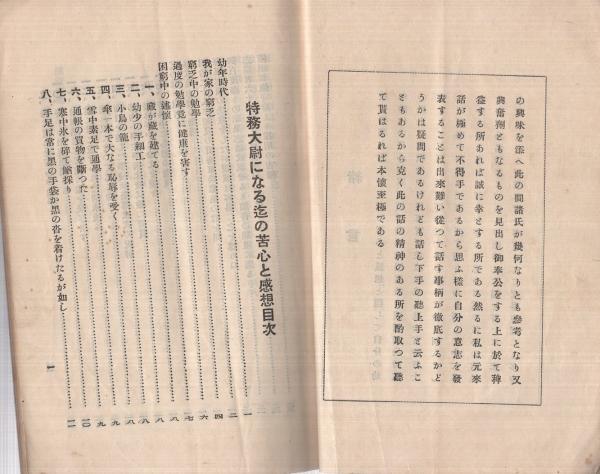 の興味を添へ此の間諸氏が幾何なりとも參考となり又
興奮劑ともなるものを見出し御奉公をする上に於て裨
益する所あれば誠に幸とする所である然るに私は元來
話が極めて不得手であるから思ふ樣に自分の意志を發
表することは出來難い從つて話す事柄が徹底するかど
うかは疑問であるけれども話し下手の聽上手と云ふこ
ともあるから克く此の話の精神のある所を酌取つて聽
て貰はるれば本懷至極である
特務大尉になる迄の苦心と感想目次
幼年時代……一
我が家の窮乏……二
窮乏中の勉學……四
過度の勉學竟に健康を害す……六
困窮中の述懷……七
一、藏が藏を建てる……八
二、幼少の手細工……八
三、小鳥の籠……八
四、傘一本で大なる恥辱を受く……九
五、雪中素足で通學……九
六、通帳の買物を斷つた……一〇
七、寒中氷を碎て鮒採り……一一
八、手足は常に黑の手袋か黑の沓を着けたるが如し……一一
1